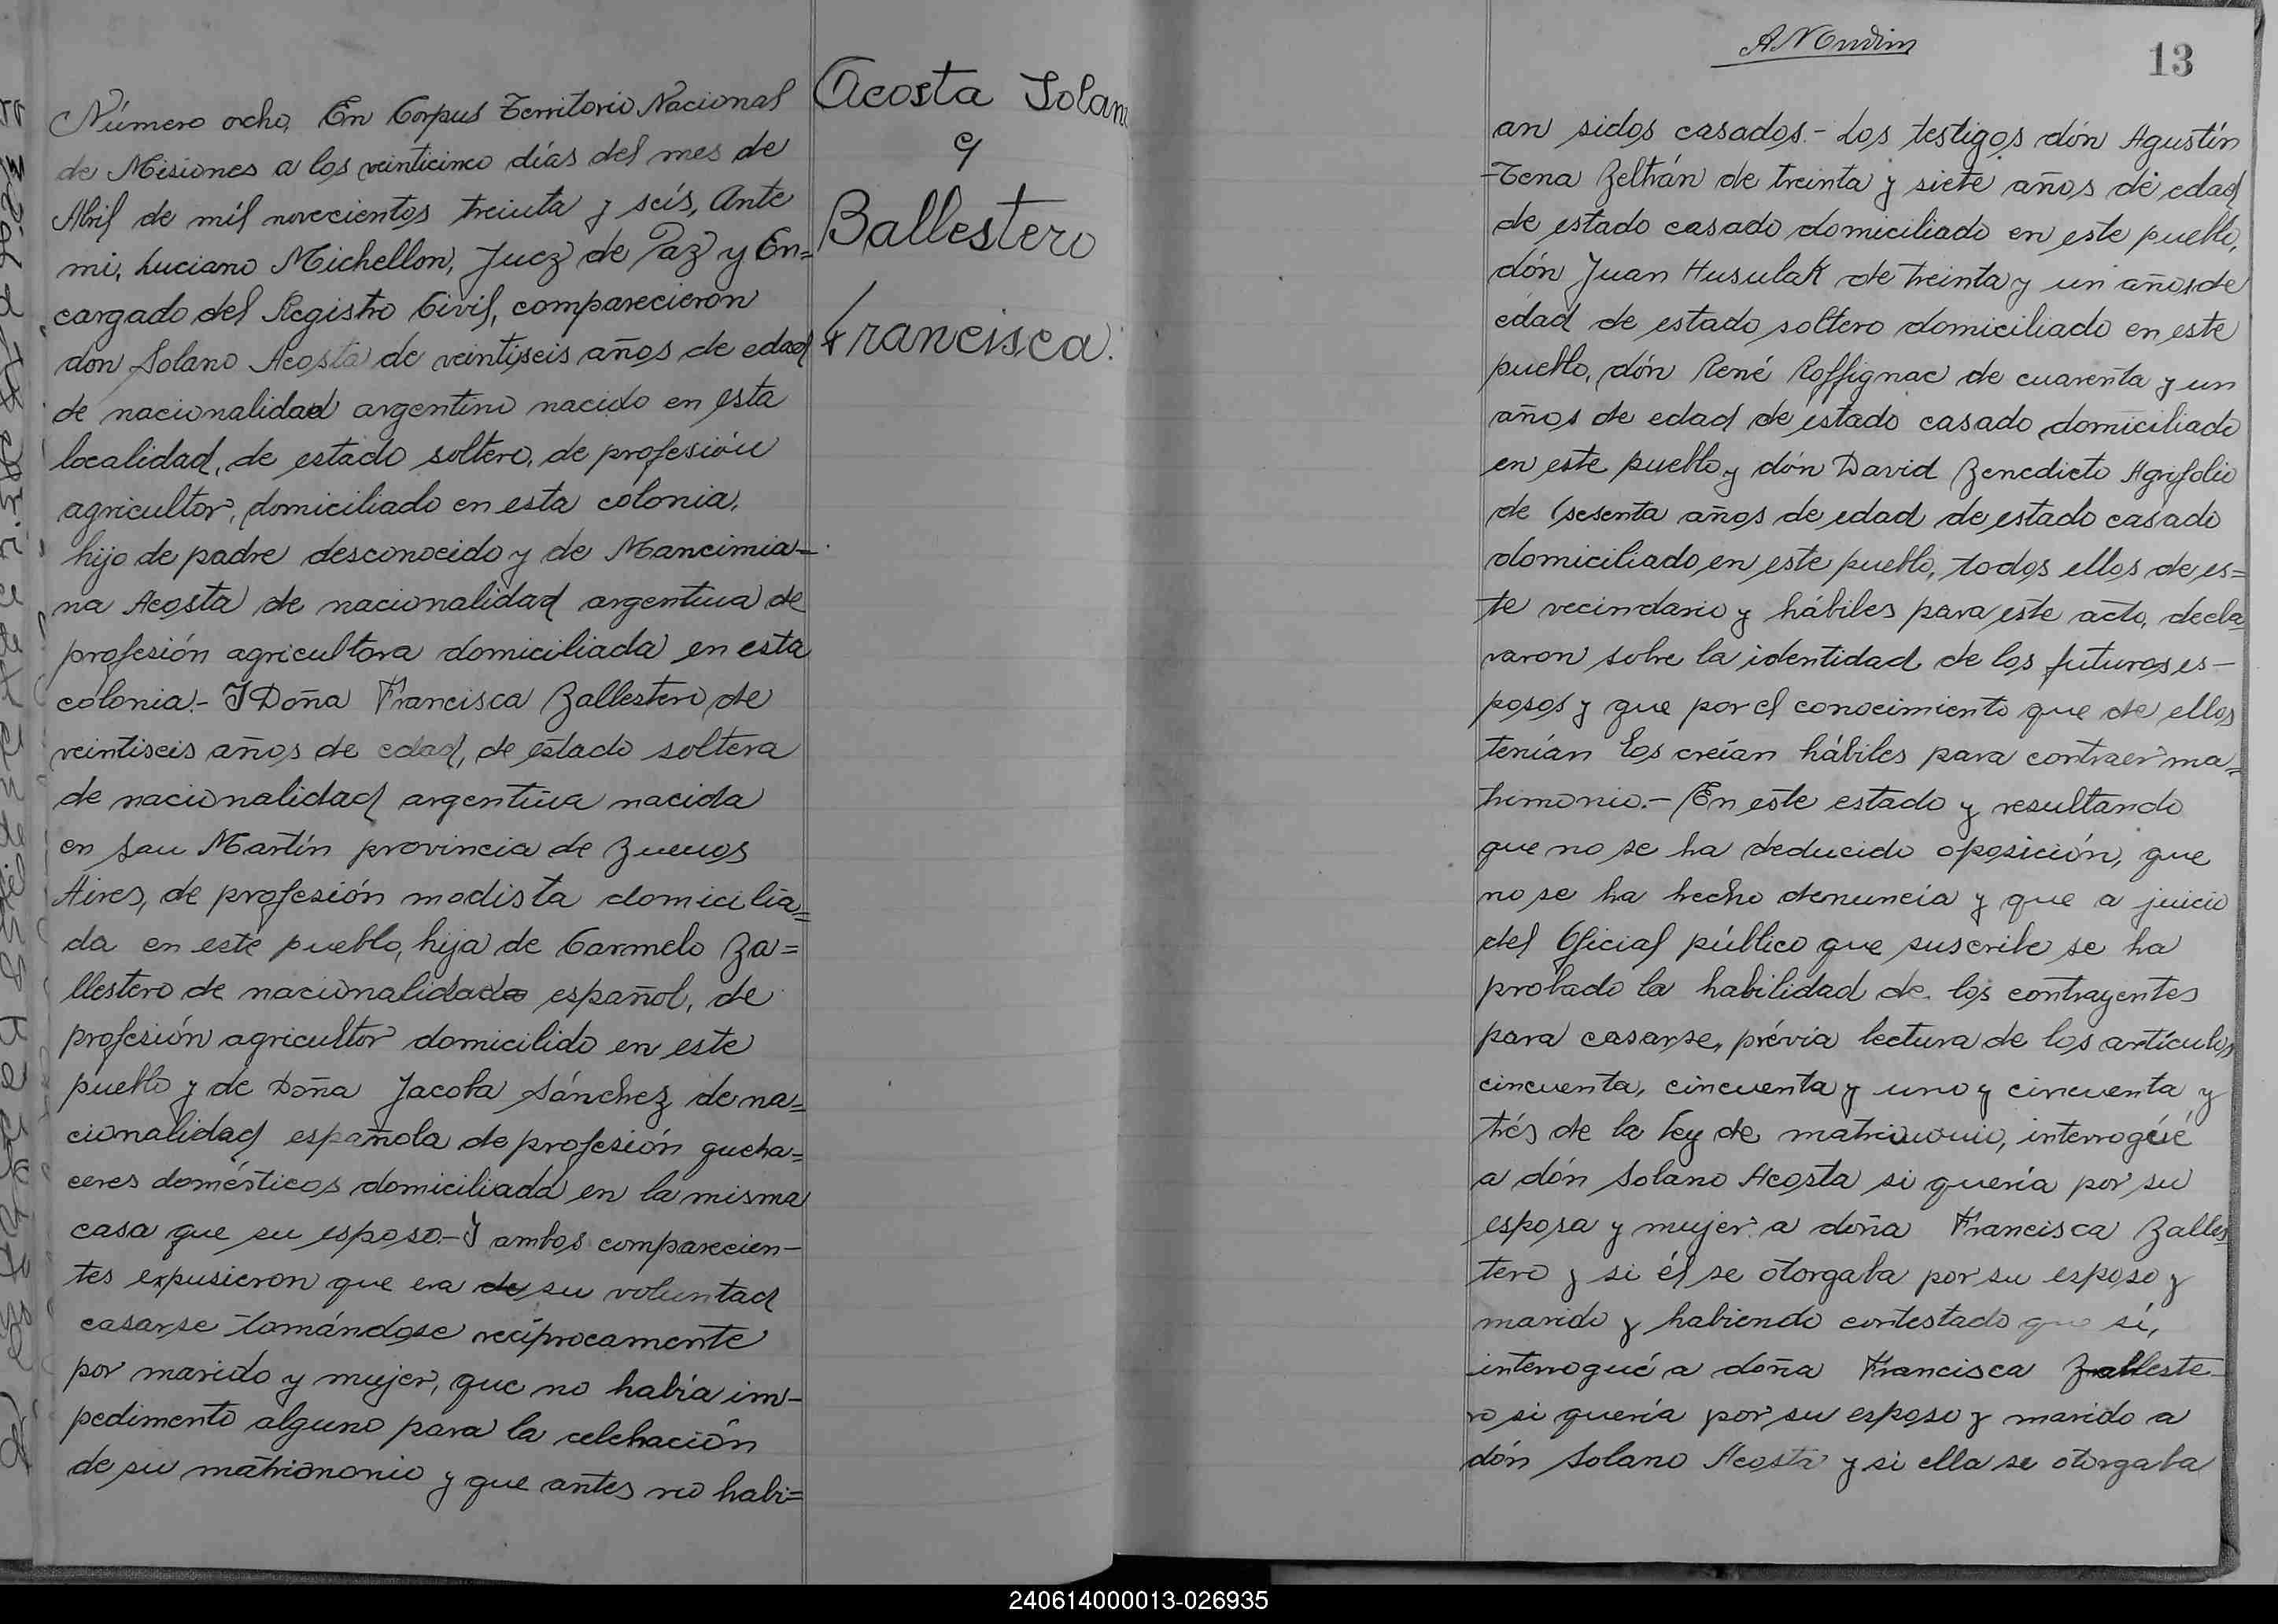 Número ocho, En Corpus Territorio Nacional
de Misiones a los veinticinco días del mes de
Abril de mil novecientos treinta y seis, Ante
mi, Luciano Michellon, Juez de Paz y En=
cargado del Registro Civil, comparecieron
don Solano Acosta de veintiseis años de edad
de nacionalidad argentino nacido en esta
localidad, de estado soltero, de profesión
agricultor, domiciliado en esta colonia,
hijo de padre desconocido y de Mancimia-
na Acosta de nacionalidad argentina de
profesión agricultora domiciliada en esta
colonia.- I Doña Francisca Ballestero de
veintiseis años de edad, de estado soltera
de nacionalidad argentina nacida
en San Martín provincia de Buenos
Aires, de profesión modista domicilia=
da en este pueblo, hija de Carmelo Ba=
llestero de nacionalidad español, de
profesión agricultor domicilido en este
pueblo y de Doña Jacoba Sánchez de na=
cionalidad española de profesión queha=
ceres domésticos domiciliada en la misma
casa que su esposo.- I ambos comparecien-
tes expusieron que era de su voluntad
casarse tomándose recíprocamente
por marido y mujer, que no había im-
pedimento alguno para la celebración
de su matrimonio y que antes no habi=
Acosta Solano
y
Ballestero
Francisca.
13
an sidos casados.- Los testigos dón Agustín
Tena Beltrán de treinta y siete años de edad
de estado casado domiciliado en este pueblo,
dón Juan Husulak de treinta y un años de
edad de estado soltero domiciliado en este
pueblo, dón René Roffignac de cuarenta y un
años de edad de estado casado domiciliado
en este pueblo y dón David Benedicto Agrifolio
de sesenta años de edad de estado casado
domiciliado en este pueblo, todos ellos de es=
te vecindario y hábiles para este acto, decla
raron sobre la identidad de los futuros es-
posos y que por el conocimiento que de ellos
tenían los creían hábiles para contraer ma=
trimonio.- En este estado y resultando
que no se ha deducido oposición, que
no se ha hecho denuncia y que a juicio
del Oficial público que suscribe se ha
probado la habilidad de los contrayentes
para casarse, prévia lectura de los artículos
cincuenta, cincuenta y uno y cincuenta y
trés de la ley de matrimonio, interrogúé
a dón Solano Acosta si quería por su
esposa y mujer a doña Francisca Balles
tero y si él se otorgaba por su esposo y
marido y habiendo contestado que sí,
interrogué a doña Francisca Balleste-
ro si quería por su esposo y marido a
dón Solano Acosta y si ella se otorgaba
240614000013-026935